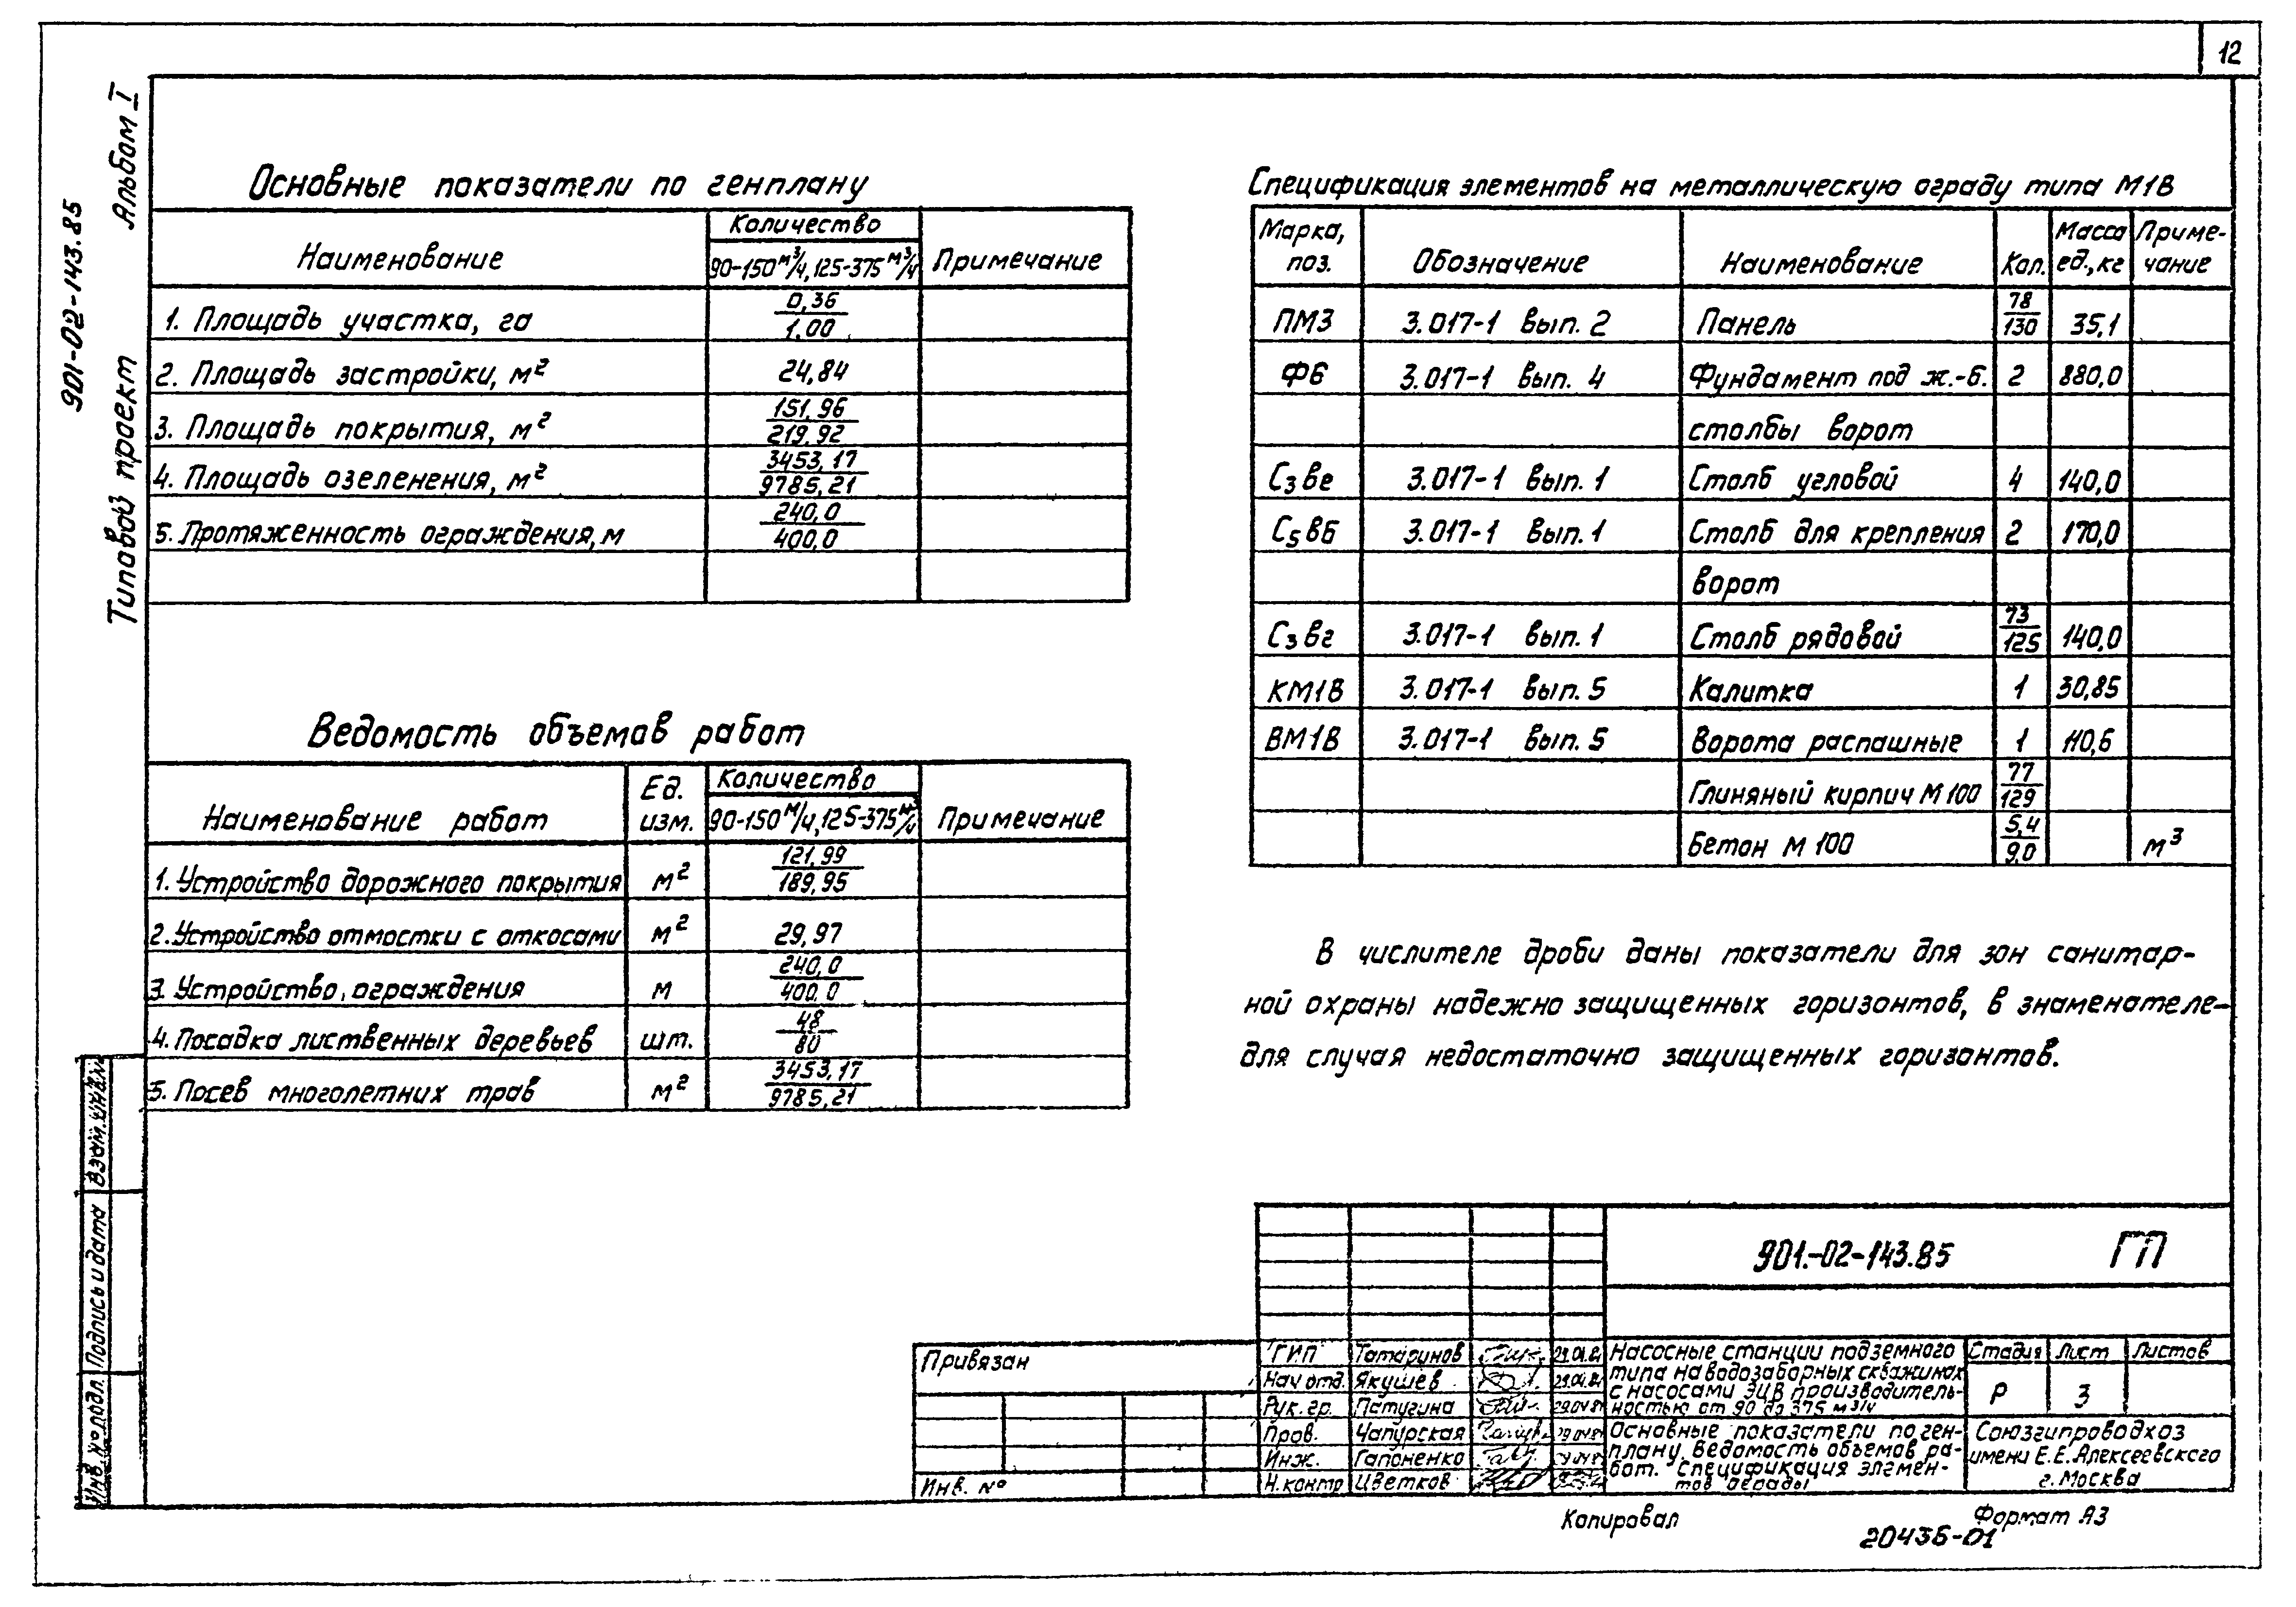 12
Альбом I
901-02-143.85
Типовой проект
Основные показатели по генплану
Наименование
Количество
90-150 м³/ч, 125-375 м³/ч
Примечание
1. Площадь участка, га 0,36 / 1.00
2. Площадь застройки, м² 24,84
3. Площадь покрытия, м² 151,96 / 219,92
4. Площадь озеленения, м² 3453,17 / 9785,21
5. Протяженность ограждения, м 240,0 / 400,0
Ведомость объемов работ
Наименование работ
Ед. изм.
Количество
90-150 м/ч, 125-375 м³/ч
Примечание
1. Устройство дорожного покрытия м² 121,99 / 189,95
2. Устройство отмостки с откосами м² 29,97
3. Устройство ограждения м 240,0 / 400,0
4. Посадка лиственных деревьев шт. 48 / 80
5. Посев многолетних трав м² 3453,17 / 9785,21
Спецификация элементов на металлическую ограду типа М1В
Марка, поз.
Обозначение
Наименование
Кол.
Масса ед., кг
Примечание
ПМ3 3.017-1 вып. 2 Панель 78 / 130 35,1
Ф6 3.017-1 вып. 4 Фундамент под ж.-б. 2 880,0
столбы ворот
С3ве 3.017-1 вып. 1 Столб угловой 4 140,0
С5вб 3.017-1 вып. 1 Столб для крепления 2 170,0
ворот
С3вг 3.017-1 вып. 1 Столб рядовой 73 / 125 140,0
КМ1В 3.017-1 вып. 5 Калитка 1 30,85
ВМ1В 3.017-1 вып. 5 Ворота распашные 1 110,6
Глиняный кирпич М 100 77 / 129
Бетон М 100 5,4 / 9,0 м³
В числителе дроби даны показатели для зон санитар-
ной охраны надежно защищенных горизонтов, в знаменателе-
для случая недостаточно защищенных горизонтов.
901.-02-143.85 ГП
ГИП Татаринов
Нач отд. Якушев
Рук. гр. Патугина
Пров. Чапурская
Инж. Гапоненко
Н. контр Цветков
Насосные станции подземного
типа на водозаборных скважинах
с насосами ЭЦВ производитель-
ностью от 90 до 375 м³/ч
Стадия Лист Листов
Р 3
Основные показатели по ген-
плану. Ведомость объемов ра-
бот. Спецификация элемен-
тов ограды
Союзгипроводхоз
имени Е.Е. Алексеевского
г. Москва
Привязан
Инв. №
Взам. инв. №
Подпись и дата
Инв. № подл.
Копировал
Формат А3
20436-01